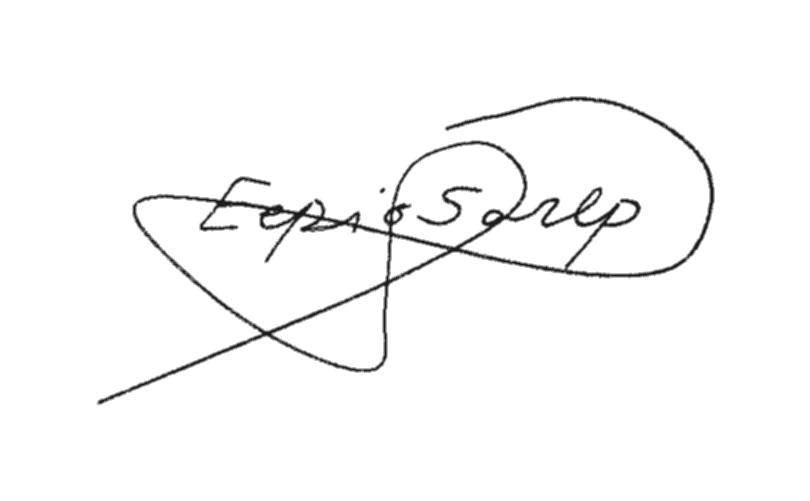 Eepio Sarep